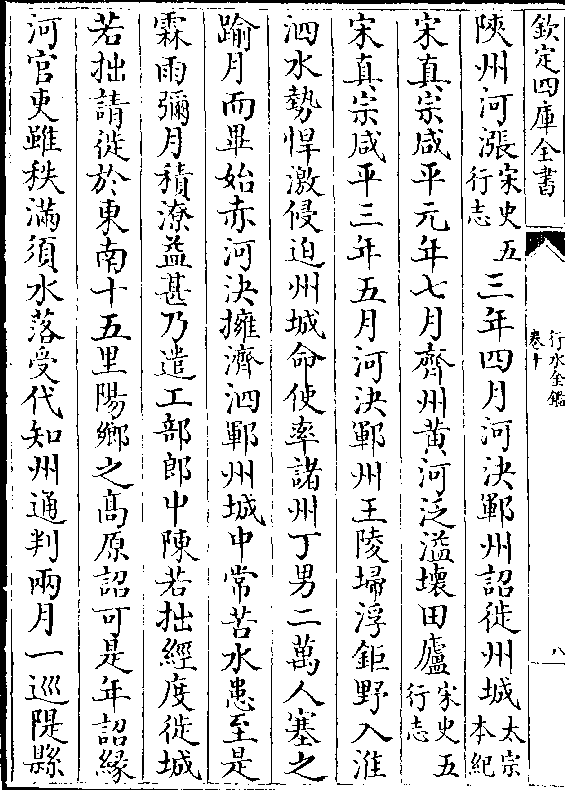 欽定四庫全書
行水金鑑
卷十
八
陜州河漲宋史五行志三年四月河決鄆州詔徙州城太宗本紀
宋真宗咸平元年七月齊州黃河泛溢壞田廬宋史五行志
宋真宗咸平三年五月河決鄆州王陵埽浮鉅野入淮
泗水勢悍激侵迫州城命使率諸州丁男二萬人塞之
踰月而畢始赤河決擁濟泗鄆州城中常苦水患至是
霖雨彌月積潦益甚乃遣工部郎中陳若拙經度徙城
若拙請徙於東南十五里陽鄉之高原詔可是年詔緣
河官吏雖秩滿須水落受代知州通判兩月一巡隄縣